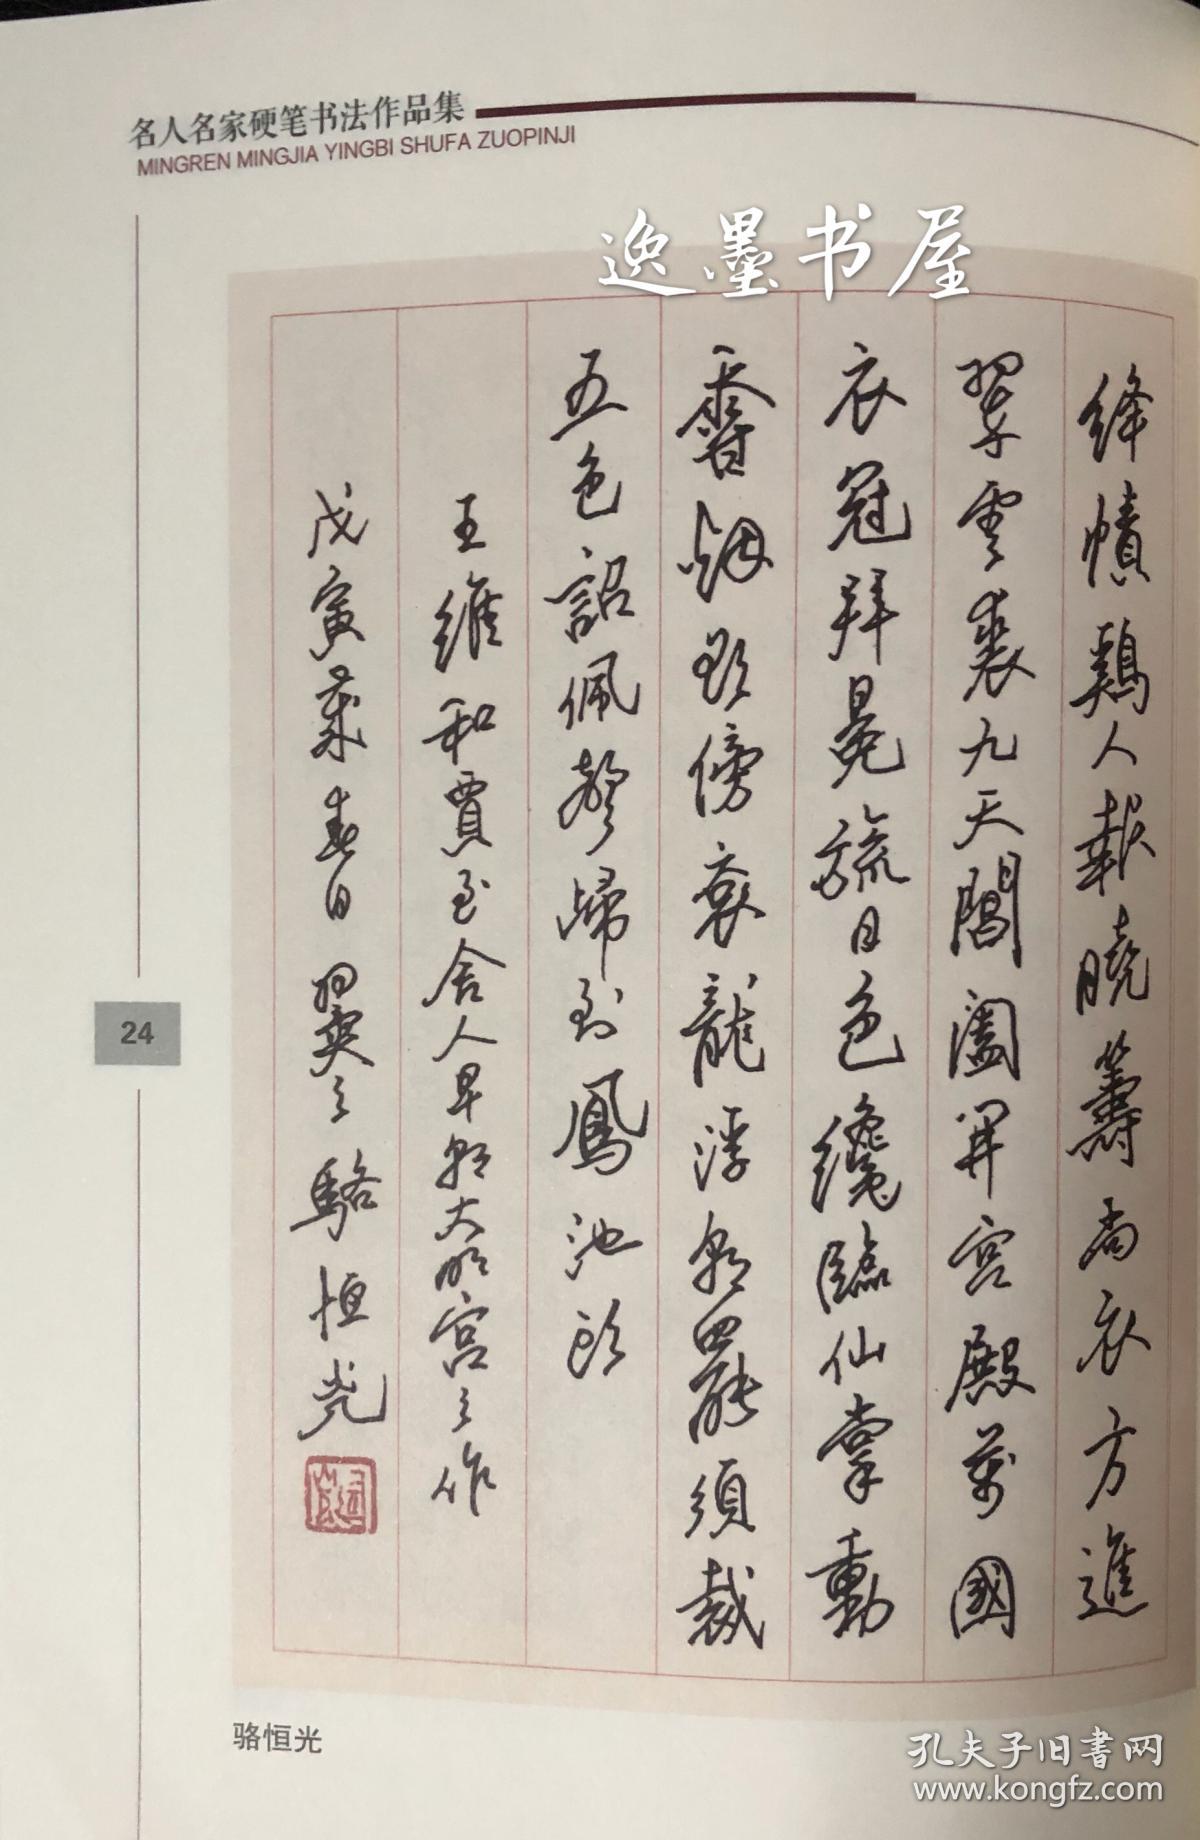 名人名家硬笔书法作品集
MINGREN MINGJIA YINGBI SHUFA ZUOPINJI
逸墨书屋
绛幘鷄人報曉籌尚衣方進
翠雲裘九天閶闔開宫殿萬國
衣冠拜冕旒日色纔臨仙掌動
香烟欲傍衮龍浮朝罷須裁
五色詔佩聲歸到鳳池頭
王維和賈至舍人早朝大明宫之作
戊寅歲春日 翼之 駱恒光
24
骆恒光
孔夫子旧書网
www.kongfz.com